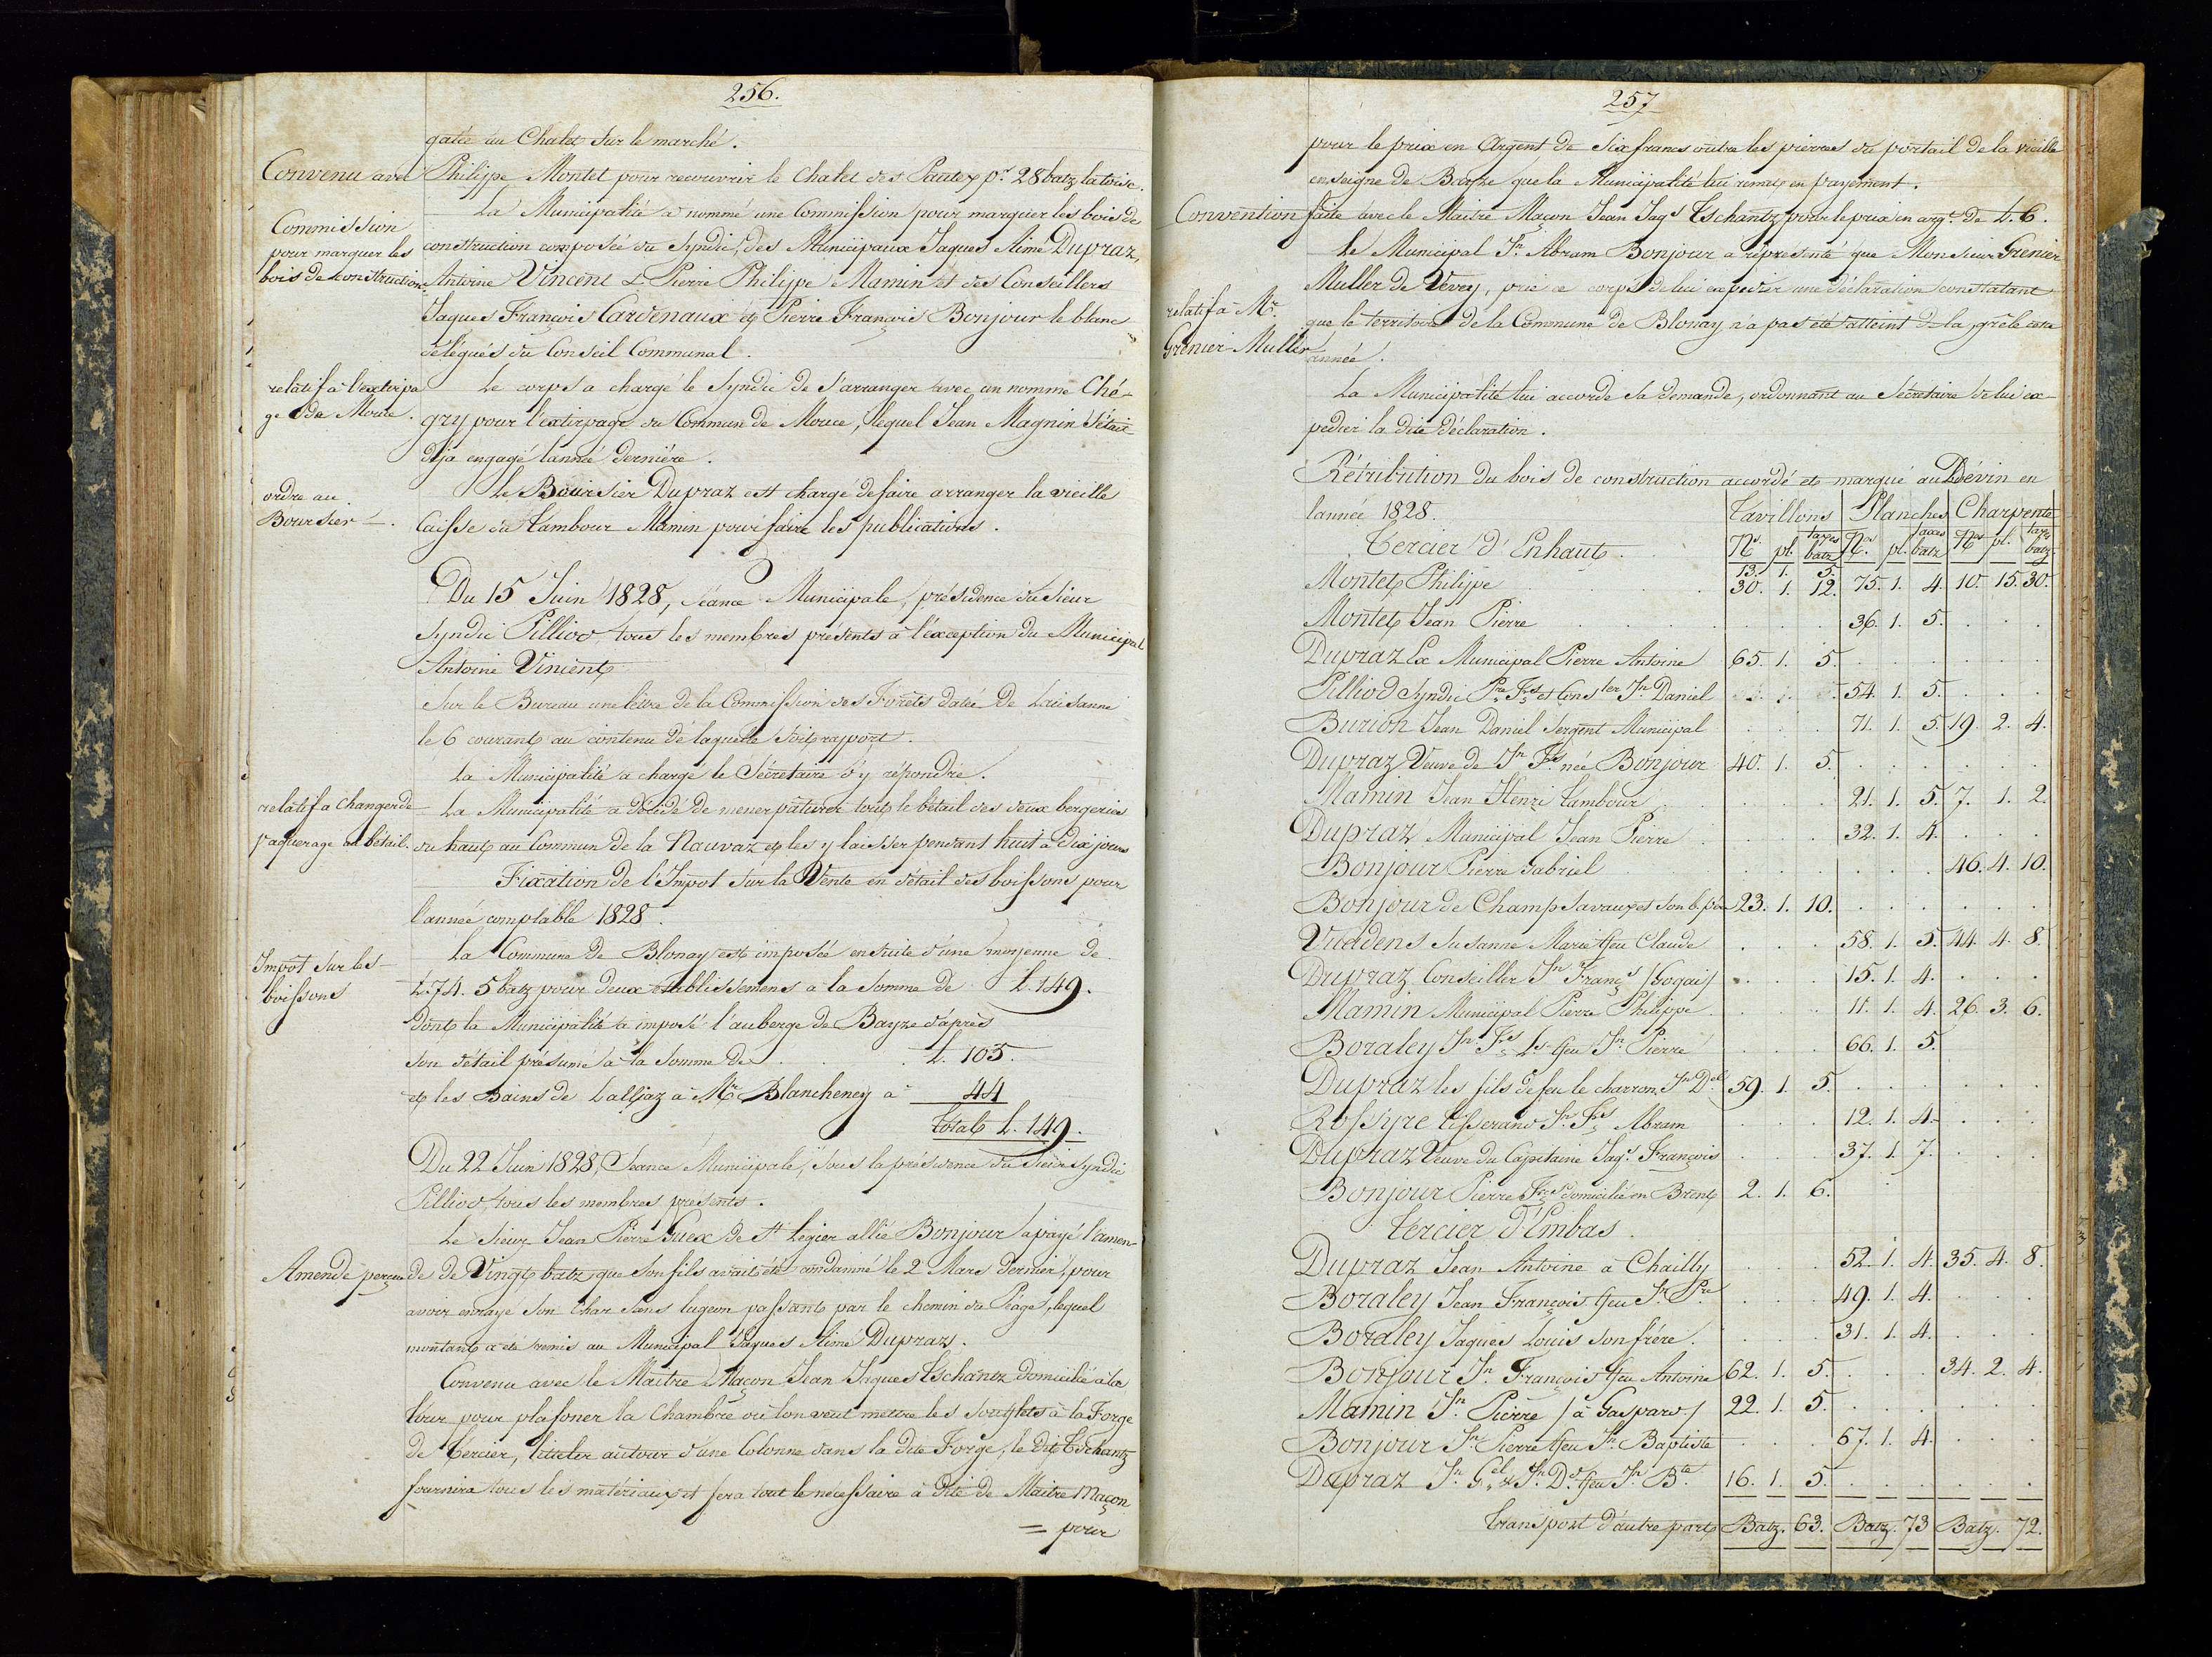 256.
gatée au Chalet sur le marché.
Convenu avec Philippe Montet pour recouvrir le chalet des Pautex pr. 28 batz la toise.
Commission
pour marquer les
bois de construction.
La Municipalité a nommé une Commission pour marquer les bois de
construction composée du Syndic, des Municipaux Jaques Aimé Dupraz,
Antoine Vincent & Pierre Philippe Mamin et des Conseillers
Jaques François Cardenaux et Pierre François Bonjour le blanc
délégués du Conseil Communal.
relatif à l'extirpa
ge de Mouce.
Le corps a chargé le Syndic de s'arranger avec un nommé Ché-
gry pour l'extirpage du Commun de Mouce, lequel Jean Magnin s'était
déja engagé lannée dernière.
ordre au
Boursier.
Le Boursier Dupraz est chargé de faire arranger la vieille
Caisse du tambour Mamin pour faire les publications.
Du 15 Juin 1828, séance Municipale, présidence du Sieur
Syndic Pilliod tous les membres présents à l'exception du Municipal
Antoine Vincent
Sur le Bureau une lettre de la Commission des Forêts datée de Lausanne
le 6 courant au contenu de laquelle soit rapport.
La Municipalité a chargé le Sécretaire d'y répondre.
relatif a changer de
paquerage au bétail.
La Municipalité a décidé de mener pâturer tout le bétail des deux bergeries
du haut au Commun de la Nauvaz et les y laisser pendant huit à dix jours
Fixation de l'Impot sur la Vente en détail des boissons pour
l'année comptable 1828.
Impôt sur les
boissons
La Commune de Blonay est imposée ensuite d'une moyenne de
L. 74. 5 batz pour deux établissemens a la somme de L. 149.
Dont la Municipalité a imposé l'auberge de Bayze d'après
son détail présumé à la somme de . . . L. 105.
et les Bains de Lalliaz à Mr Blancheney a 44
Total L. 149.
Du 22 Juin 1828, Séance Municipale, sous la présidence du Sieur Syndic
Pilliod, tous les membres présents.
Le Sieur Jean Pierre Guex de St Légier allié Bonjour a payé l'amen-
Amende perçue
de de Vingt batz que son fils avait été condamné le 2 Mars dernier, pour
avoir enrayé son Char sans lugeon passant par le chemin du Péage, lequel
montant a été remis au Municipal Jaques Aimé Dupraz.
Convenu avec le Maitre Maçon Jean Jaques Tschantz domicilié à la
tour pour plafoner la Chambre où lon veut mettre les soufflets à la Forge
de Tercier, autour d'une Colonne dans la dite Forge, le dit Tschantz
fournira tous les matériaux et fera tout le nécessaire à dite de Maitre Maçon
= pour
257
pour le prix en Argent de Six francs outre les pierres du portail de la vieille
enseigne de Bayze que la Municipalité lui remet en payement.
Convention faite avec le Maitre Maçon Jean Jaqs Tschantz pour le prix en argt. de L. 6.
relatif à Mr.
Grenier-Muller
Le Municipal Jn. Abram Bonjour a représenté que Monsieur Grenier
Muller de Vevey, prie ce corps de lui expédier une déclaration constatant
que le territoire de la Commune de Blonay n'a pas été atteint de la grêle cette
année.
La Municipalité lui accorde sa demande, ordonnant au Sécretaire de lui ex-
pédier la dite déclaration.
Rétribution du bois de construction accordé et marqué au Dévin en
lannée 1828. Tavillons Planches Charpente
Tercier d'Enhaut. Ns. pl. taxes batz Nos. pl. taxes batz Nos pl. taxes batz
13. 1. 5.
Montet Philippe 30. 1. 12. 75. 1. 4. 10. 15. 30.
Montet Jean Pierre 36. 1. 5.
Dupraz Ex Municipal Pierre Antoine 65. 1. 5.
Pilliod Syndic Pre. Fs et Conster Jn Daniel 54. 1. 5.
Burion Jean Daniel Sergent Municipal 71. 1. 5. 19. 2. 4.
Dupraz Veuve de Jn Fs. née Bonjour 40. 1. 5.
Mamin Jean Henri tambour 21. 1. 5. 7. 1. 2.
Dupraz Municipal Jean Pierre 32. 1. 4.
Bonjour Pierre Gabriel 46. 4. 10.
Bonjour de Champsavaux et son b. père 23. 1. 10.
Vuadens Susanne Marie ffeu Claude 58. 1. 5. 44. 4. 8.
Dupraz Conseiller Jn Françs /Gogai/ 15. 1. 4.
Mamin Municipal Pierre Philippe 11. 1. 4. 26. 3. 6.
Boraley Jn Fs Ls ffeu Jn Pierre 66. 1. 5.
Dupraz les fils de feu le charron Jn Del 59. 1. 5.
Rossyre tisserand Jn. Fs Abram 12. 1. 4.
Dupraz Veuve du Capitaine Jaqs. François 37. 1. 7.
Bonjour Pierre Frs domicilié en Brent 2. 1. 6.
Tercier d'Embas.
Dupraz Jean Antoine à Chailly 52. 1. 4. 35. 4. 8.
Boraley Jean François ffeu Jn Pre 49. 1. 4.
Boraley Jaques Louis son frère. 31. 1. 4.
Bonjour Jn François ffeu Antoine 62. 1. 5. 34. 2. 4.
Mamin Jn Pierre /à Gaspard/ 22. 1. 5.
Bonjour Jn Pierre ffeu Jn Baptiste 67. 1. 4.
Dupraz Jn Gel & Jn Dd ffeu Jn Bte 16. 1. 5.
Transport d'autre part Batz. 63. Batz. 73 Batz. 72.